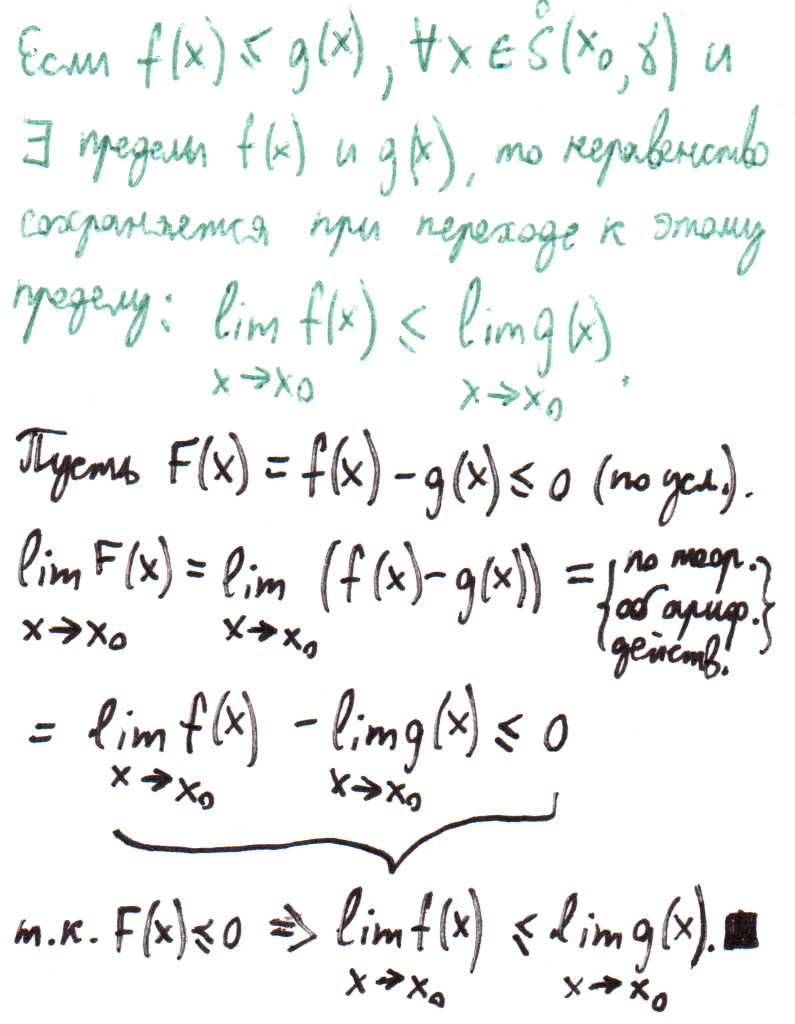 Если f(x) ≤ g(x), ∀x ∈ S̊(x₀, γ) и
∃ пределы f(x) и g(x), то неравенство
сохраняется при переходе к этому
пределу: lim f(x) ≤ lim g(x).
x→x₀ x→x₀
Пусть F(x) = f(x) – g(x) ≤ 0 (по усл.).
lim F(x) = lim (f(x) – g(x)) = {по теор. об ариф. действ.}
x→x₀ x→x₀
= lim f(x) – lim g(x) ≤ 0
x→x₀ x→x₀
т.к. F(x) ≤ 0 ⇒ lim f(x) ≤ lim g(x). ■
x→x₀ x→x₀